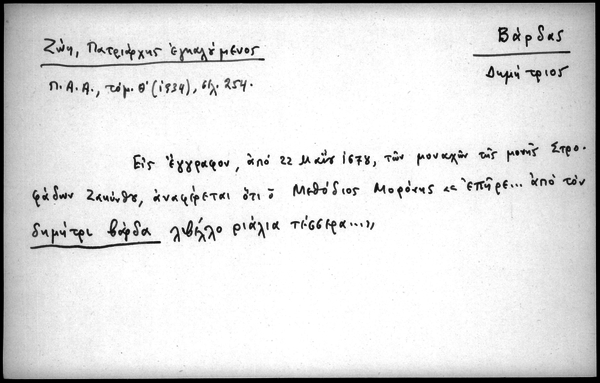 Ζώη, Πατριάρχης ἐγκαλούμενος
Βάρδας
Π.Α.Α., τόμ. Θ' (1934), σελ. 254.
Δημήτριος
Εἰς ἔγγραφον, ἀπὸ 22 Μαΐου 1678, τῶν μοναχῶν τῆς μονῆς Στρο-
φάδων Ζακύνθου, ἀναφέρεται ὅτι ὁ Μεθόδιος Μορόνης «ἐπῆρε... ἀπὸ τὸν
δημήτρι βάρδα λιβέλλο ριάλια τέσσερα...»